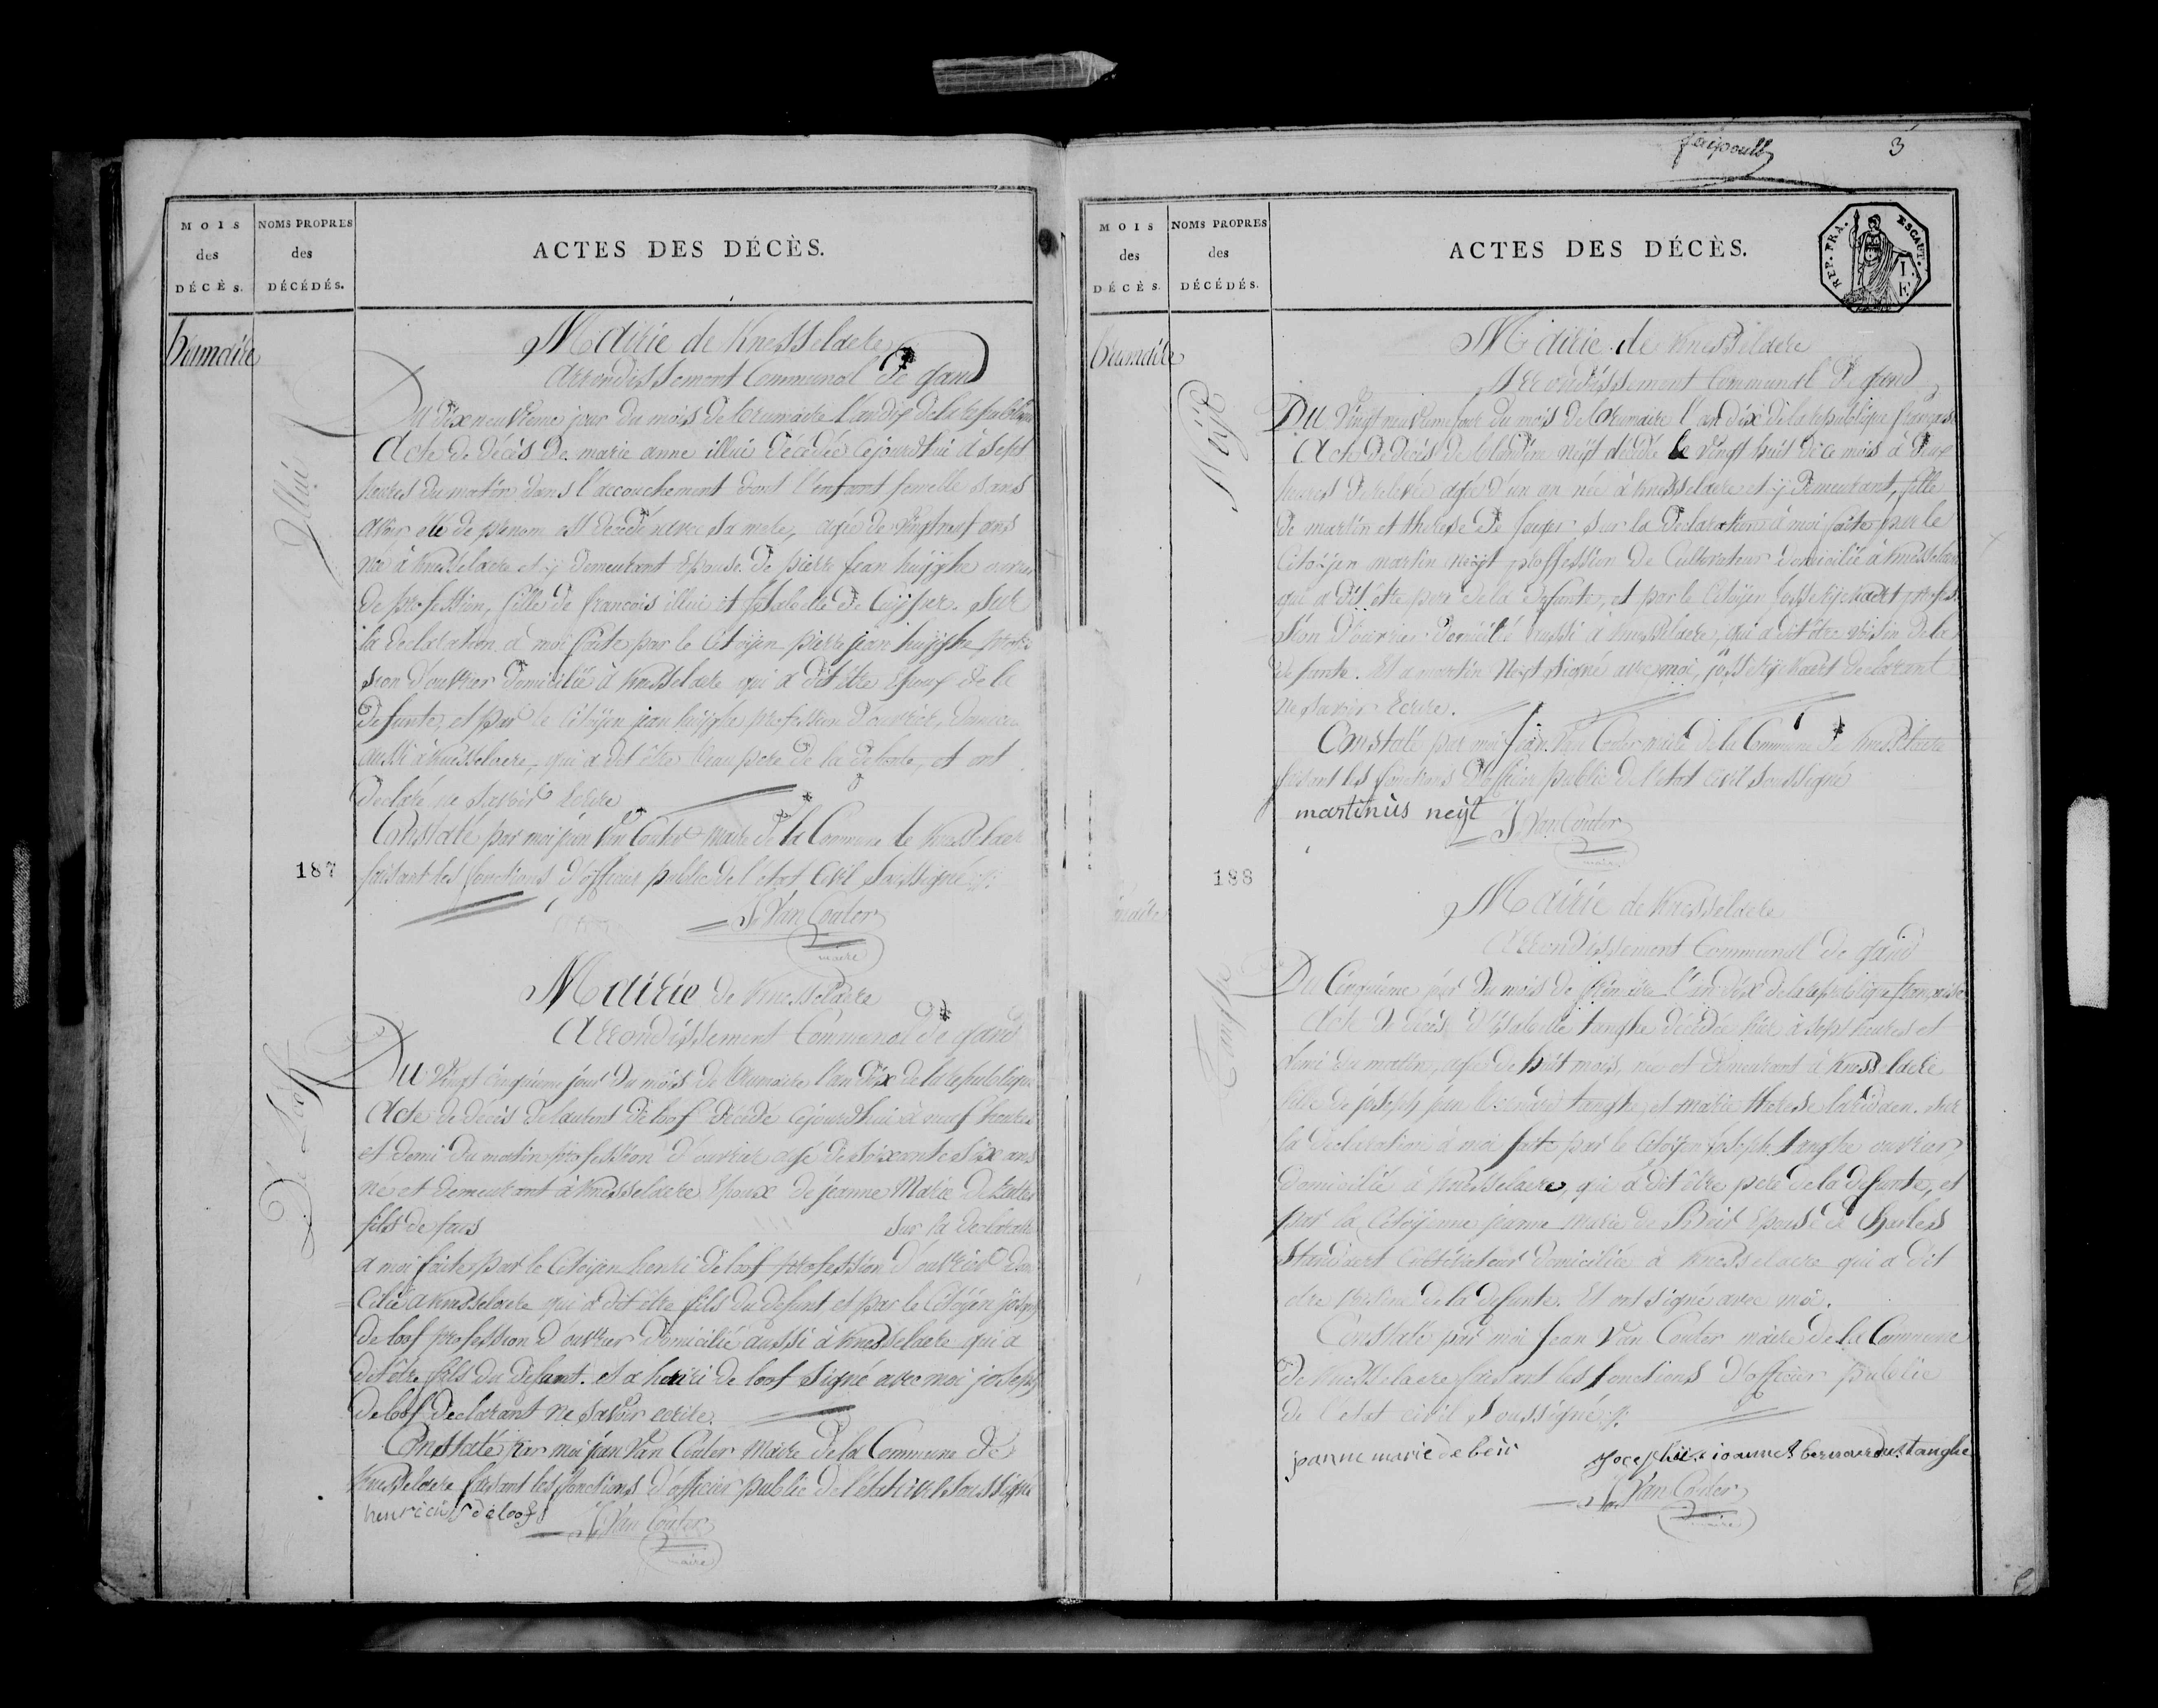 MOIS
des
DÉCÈS.
NOMS PROPRES
des
DÉCÉDÉS.
ACTES DES DÉCÈS.
brumaire
Illui
Mairie de Knesselaere
Arrondissement Communal De gand
Du Dix neuvieme jour du mois de brumaire l'an dix de la republique
Acte de décès de marie anne illui décédée cejourdhui à sept
heures du matin dans l'accouchement dont l'enfant femelle sans
avoir été de prenom est décédé avec sa mere, agée de vingt neuf ans
née à Knesselaere et y demeurant Epouse de pierre jean huijghe ouvrier
de profession, fille de francois illui et de Cuijper. Sur
la declaration à moi faite par le Citoyen pierre jean huijghe profes
sion d'ouvrier domicilié à Knesselaere qui a dit être Epoux de la
defunte, et par le Citoyen jean huijghe profession d'ouvrier, domicilié
aussi à Knesselaere, qui a dit être beau pere de la defunte, et ont
declaré ne savoir Ecrire
Constaté par moi jean Van Couter maire de la Commune de Knesselaere
faisant les fonctions d'officier public de l'état Civil Soussigné
J. Van Couter
maire
187
De Loof
Mairie de Knesselaere
Arrondissement Communal De gand
Du Vingt cinquieme jour du mois de brumaire l'an Dix de la republique
Acte de décès de laurent de loof décédé cejourdhui à neuf heures
et demi du matin profession d'ouvrier agé de soixante six ans
né et demeurant à Knesselaere Epoux de jeanne Marie
fils de faus sur la declaration
a moi faite par le Citoyen henri de loof profession d'ouvrier domi
cilié à Knesselaere qui a dit être fils du defunt et par le Citoyen joseph
de loof profession d'ouvrier domicilié aussi à Knesselaere qui a
dit être fils du defunt. et a henri de loof signé avec moi joseph
de loof declarant ne savoir ecrire.
Constaté par moi jean Van Couter Maire de la Commune de
Knesselaere faisant les fonctions d'officier public de l'état civil soussigné
henricus de loof
J. Van Couter
maire
3
MOIS
des
DÉCÈS.
NOMS PROPRES
des
DÉCÉDÉS.
ACTES DES DÉCÈS.
REP. FRA. ESCAUT.
brumaire
Neijt
Mairie de Knesselaere
Arrondissement Communal De gand
Du Vingt neuvieme jour du mois de brumaire l'an dix de la republique française
Acte de décès de blandine neijt décédé le vingt huit de ce mois à deux
heures de relevée agée d'un an née à Knesselaere et y demeurant, fille
de martin et therese De sur la declaration à moi faite par le
Citoyen martin neijt proffession de Cultivateur domicilié à Knesselaere
qui a dit être pere de la defunte, et par le Citoyen josse profes
sion d'ouvrier domicilié aussi à Knesselaere, qui a dit être voisin de la
defunte. Et a martin Neijt signé avec moi, josse declarant
ne savoir Ecrire.
Constaté par moi Jean Van Couter maire de la Commune de Knesselaere
faisant les fonctions d'officier public de l'etat civil soussigné
martinùs neijt
J. Van Couter
maire
188
Tanghe
Mairie de Knesselaere
Arrondissement Communal de gand
Du Cinquiéme jour Du mois de frimaire l'an dix de la republique française
Acte de décès de tanghe décédée hier à sept heures et
demi du matin, agée de huit mois, née et demeurant à Knesselaere
fille de joseph jean bernard tanghe, et marie therese . sur
la declaration à moi faite par le Citoyen joseph tanghe ouvrier
domicilié à Knesselaere, qui a dit être pere de la defunte, et
par la Citoyenne jeanne marie de Epouse de Charles
Standaert Cultivateur domiciliée à Knesselaere qui a dit
etre voisine de la defunte. Et ont signé avec moi.
Constaté par moi Jean Van Couter maire de la Commune
de Knesselaere faisant les fonctions d'officier public
de l'etat civil soussigné
joanne marie de
josephus joannes bernardus tanghe
J. Van Couter
maire